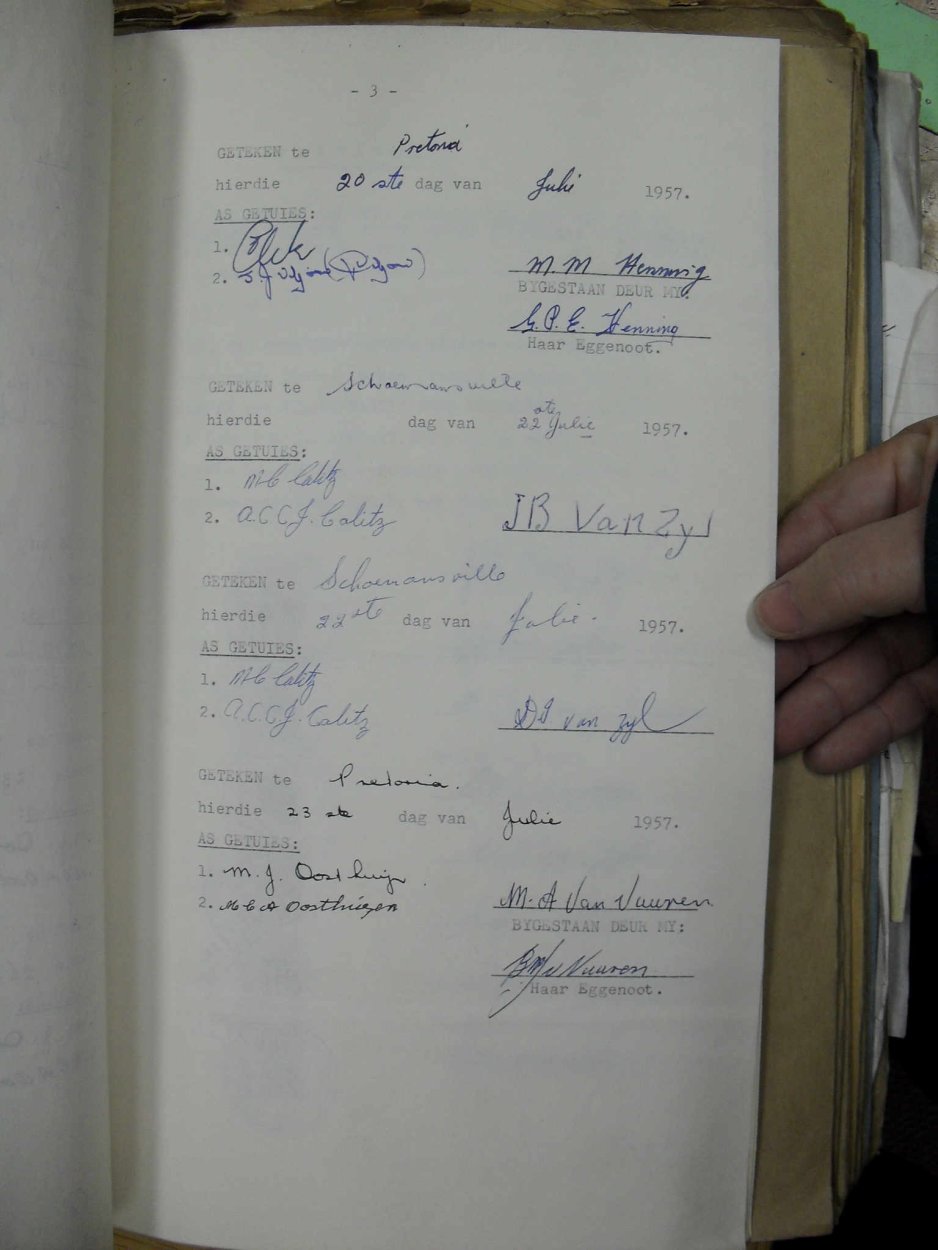 - 3 -
GETEKEN te Pretoria
hierdie 20 ste dag van Julie 1957.
AS GETUIES:
1.
2. M.M Henning
BYGESTAAN DEUR MY:
G.P.E. Henning
Haar Eggenoot.
GETEKEN te Schoemansville
hierdie dag van 22ste Julie 1957.
AS GETUIES:
1. M C Calitz
2. A.C.C.J. Calitz JB Van Zyl
GETEKEN te Schoemansville
hierdie 22ste dag van Julie. 1957.
AS GETUIES:
1. M C Calitz
2. A.C.C.J. Calitz van Zyl
GETEKEN te Pretoria.
hierdie 23 ste dag van Julie 1957.
AS GETUIES:
1. M.J. Oosthuizen
2. Oosthuizen M-A Van Vuuren
BYGESTAAN DEUR MY:
Vuuren
Haar Eggenoot.